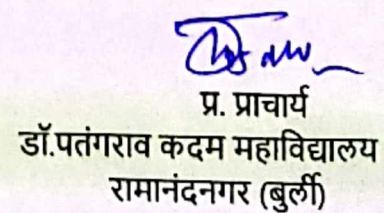 प्र. प्राचार्य
डॉ.पतंगराव कदम महाविद्यालय
रामानंदनगर (बुर्ली)